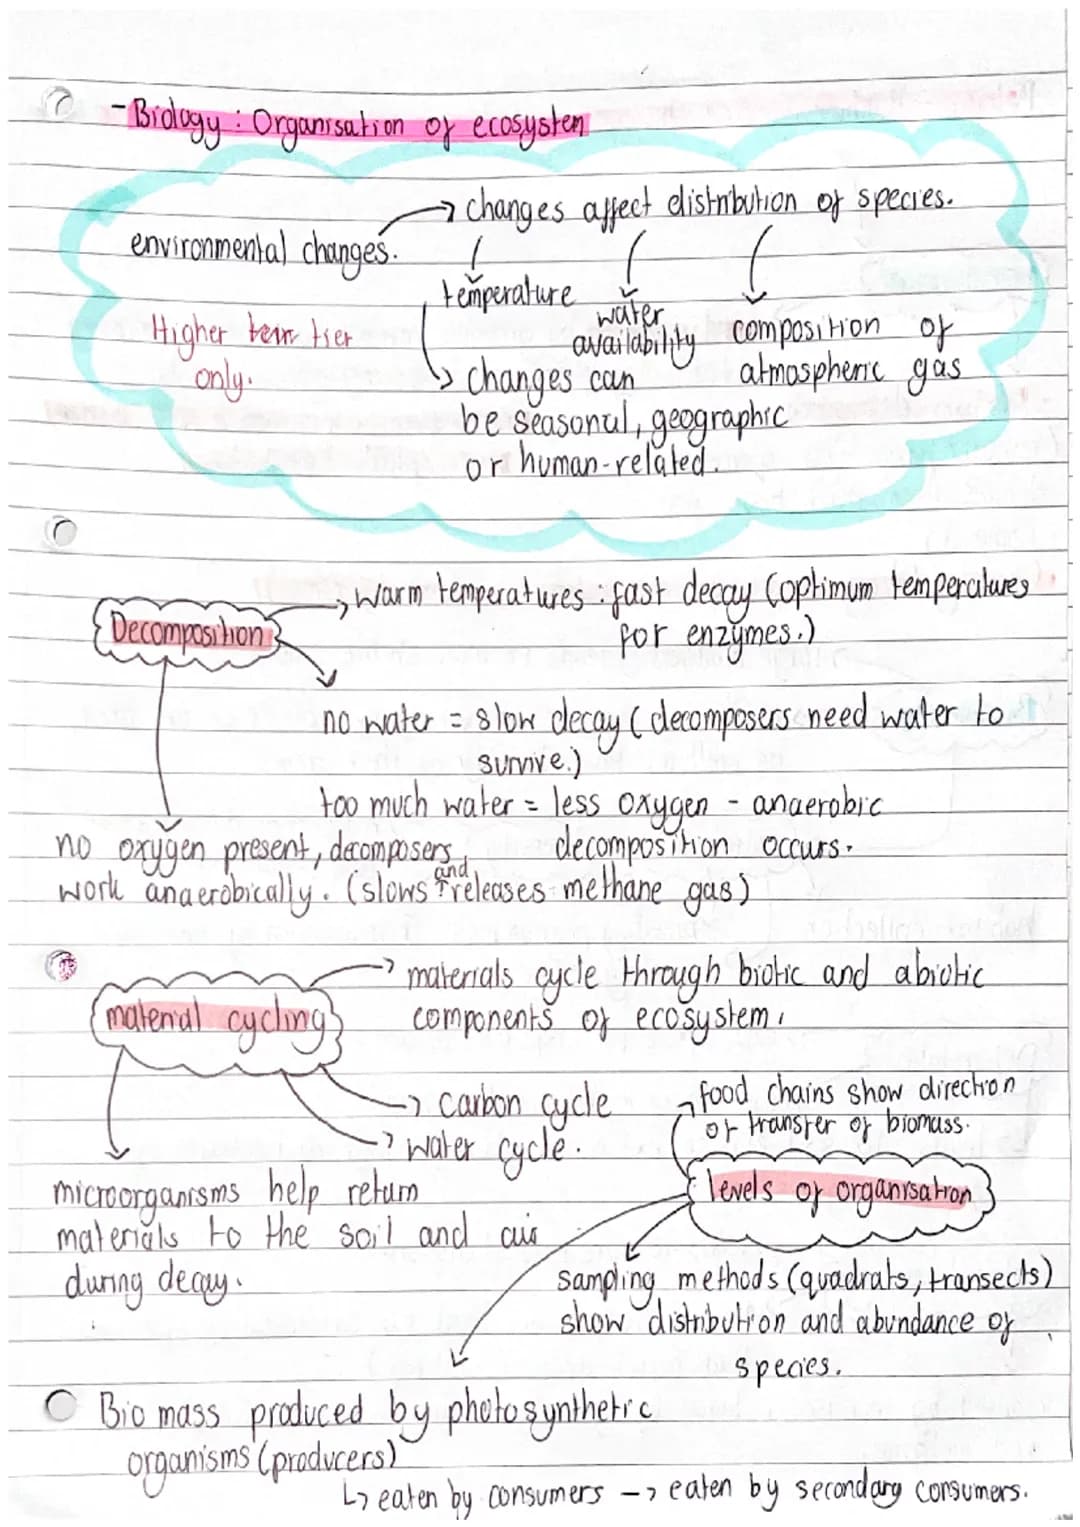 - Biology : Organisation of ecosystem
→ changes affect distribution of species.
environmental changes.
temperature
water
availability
composition of
atmospheric gas
Higher tier
only.
↳ changes can
be seasonal, geographic
or human-related.
Decomposition
→ warm temperatures : fast decay (optimum temperatures
for enzymes.)
no water = slow decay ( decomposers need water to
survive.)
too much water = less oxygen - anaerobic
decomposition occurs.
no oxygen present, decomposers
work anaerobically. (slows and releases methane gas)
material cycling
→ materials cycle through biotic and abiotic
components of ecosystem.
→ Carbon cycle
→ water cycle.
microorganisms help return
materials to the soil and air
during decay.
food chains show direction
of transfer of biomass.
levels of organisation
sampling methods (quadrats, transects)
show distribution and abundance of
species.
Bio mass produced by photosynthetic
organisms (producers)
↳ eaten by consumers → eaten by secondary consumers.